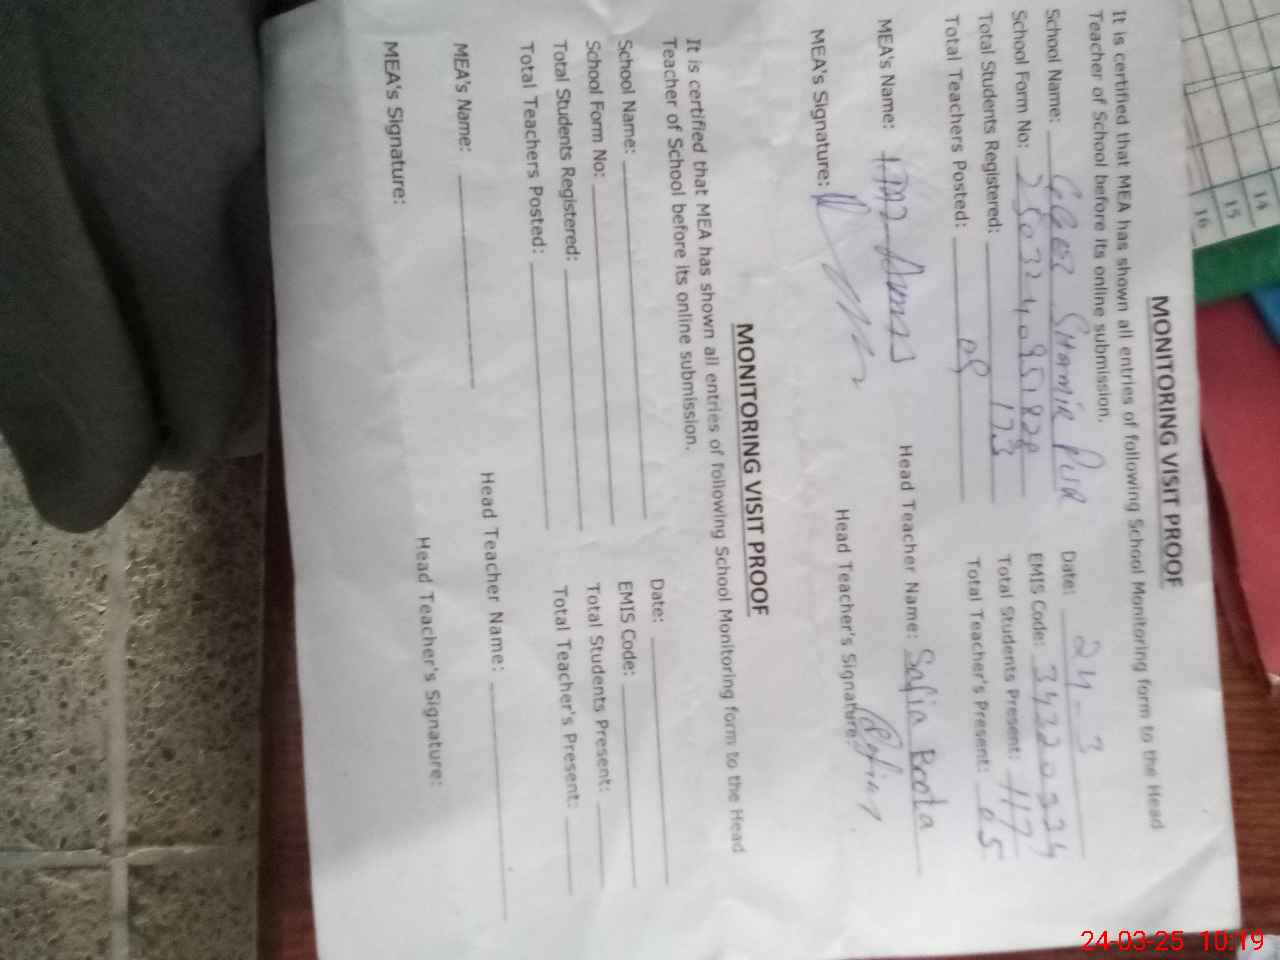 MONITORING VISIT PROOF
It is certified that MEA has shown all entries of following School Monitoring form to the Head
Teacher of School before its online submission.
School Name: Date: 24-3
School Form No: EMIS Code: 34220324
Total Students Registered: 173 Total Students Present: 117
Total Teachers Posted: 05 Total Teacher's Present: 05
MEA's Name: Head Teacher Name: Safia Boota
MEA's Signature: Head Teacher's Signature:
MONITORING VISIT PROOF
It is certified that MEA has shown all entries of following School Monitoring form to the Head
Teacher of School before its online submission.
School Name: Date:
School Form No: EMIS Code:
Total Students Registered: Total Students Present:
Total Teachers Posted: Total Teacher's Present:
MEA's Name: Head Teacher Name:
MEA's Signature: Head Teacher's Signature:
14
15
16
24-03-25 10:19